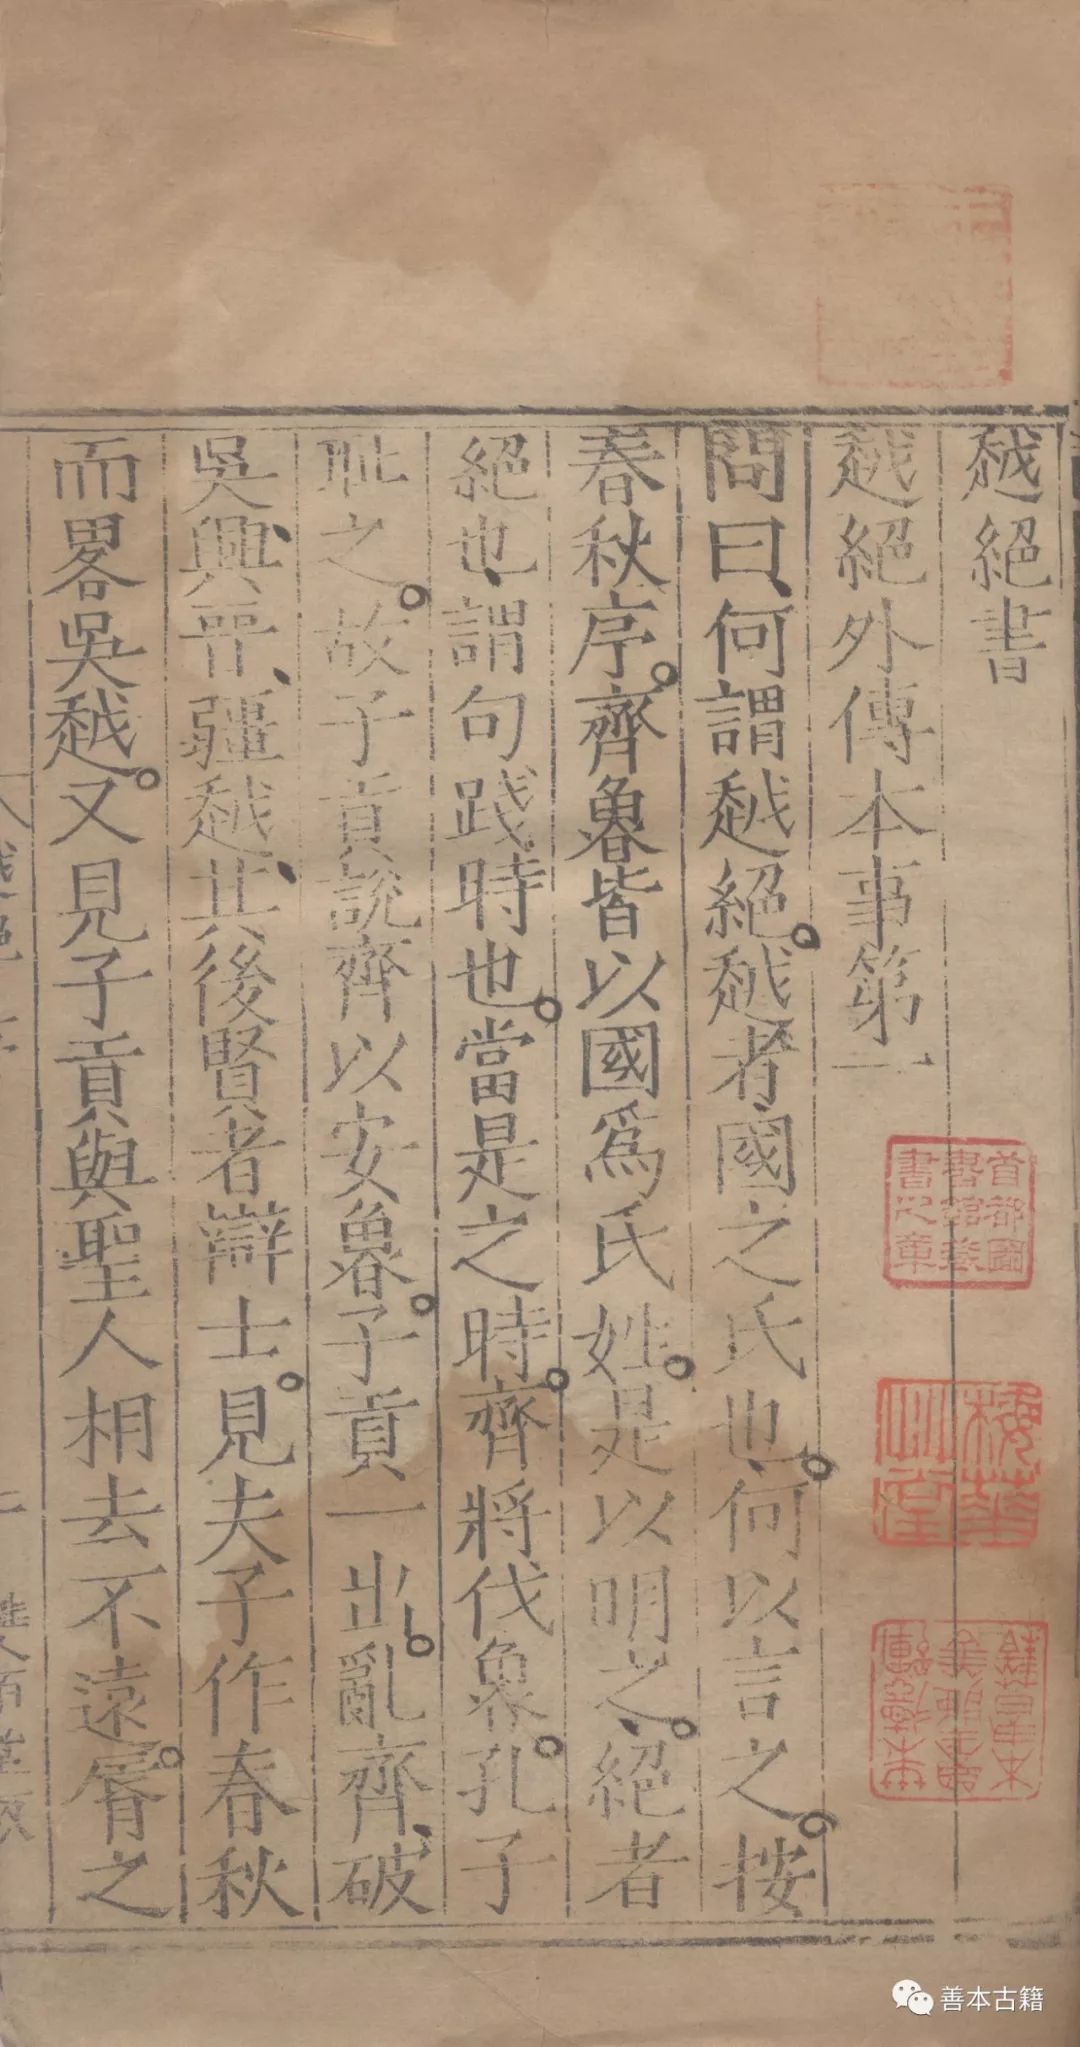 越絕書
越絕外傳本事第一
問曰何謂越絕越者國之氏也何以言之按
春秋序齊魯皆以國爲氏姓是以明之絕者
絕也謂句踐時也當是之時齊將伐魯孔子
恥之故子貢說齊以安魯子貢一出亂齊破
吳興晋疆越其後賢者辯士見夫子作春秋
而畧吳越又見子貢與聖人相去不遠脣之
首都圖
書館藏
書之章
善本古籍